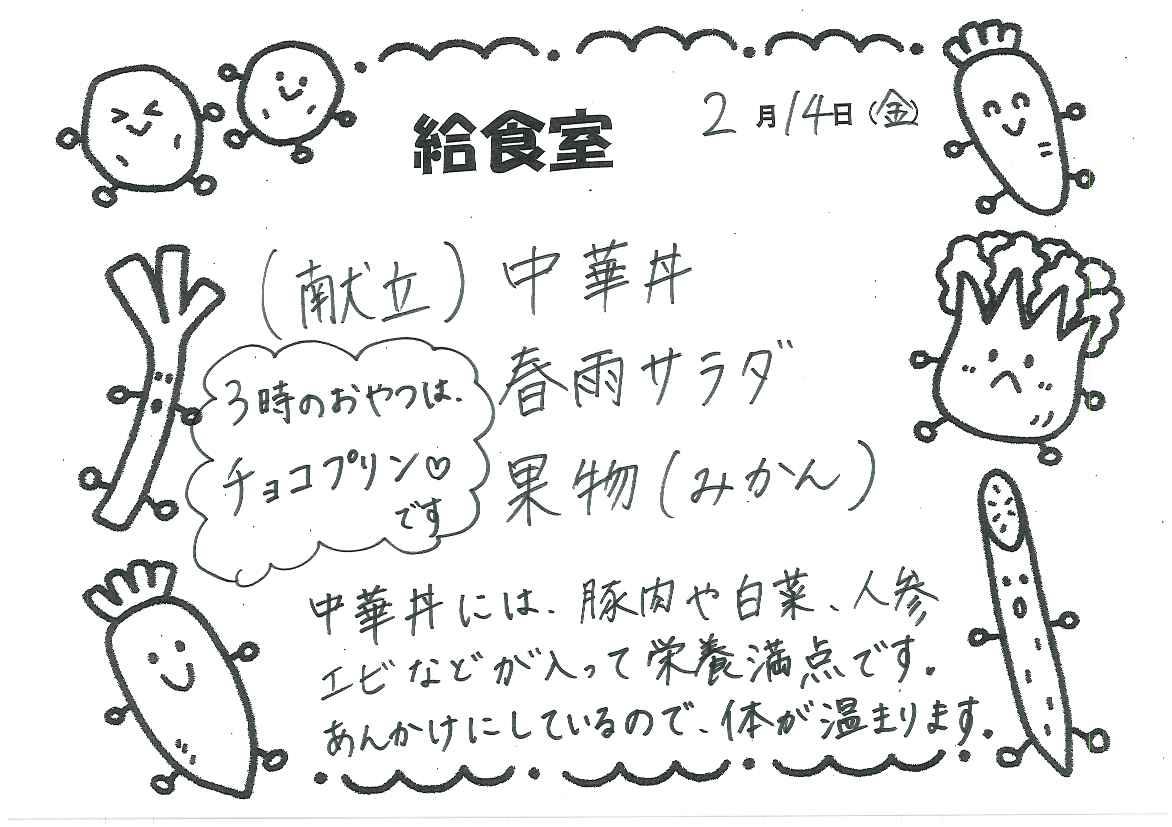 給食室
2月14日(金)
(献立) 中華丼
春雨サラダ
果物(みかん)
3時のおやつは、
チョコプリン♡
です
中華丼には、豚肉や白菜、人参
エビなどが入って栄養満点です。
あんかけにしているので、体が温まります。